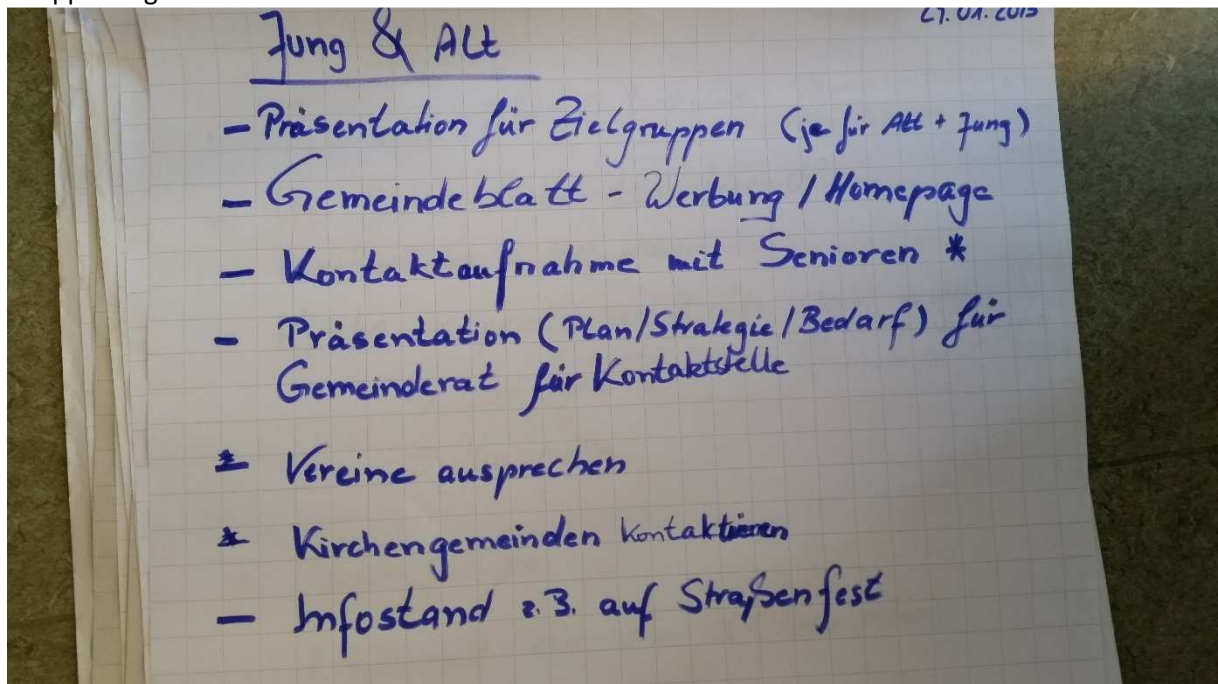 Jung & Alt
- Präsentation für Zielgruppen (je für Alt + Jung)
- Gemeindeblatt - Werbung / Homepage
- Kontaktaufnahme mit Senioren *
- Präsentation (Plan/Strategie/Bedarf) für
Gemeinderat für Kontaktstelle
* Vereine ansprechen
* Kirchengemeinden kontaktieren
- Infostand z.B. auf Straßenfest